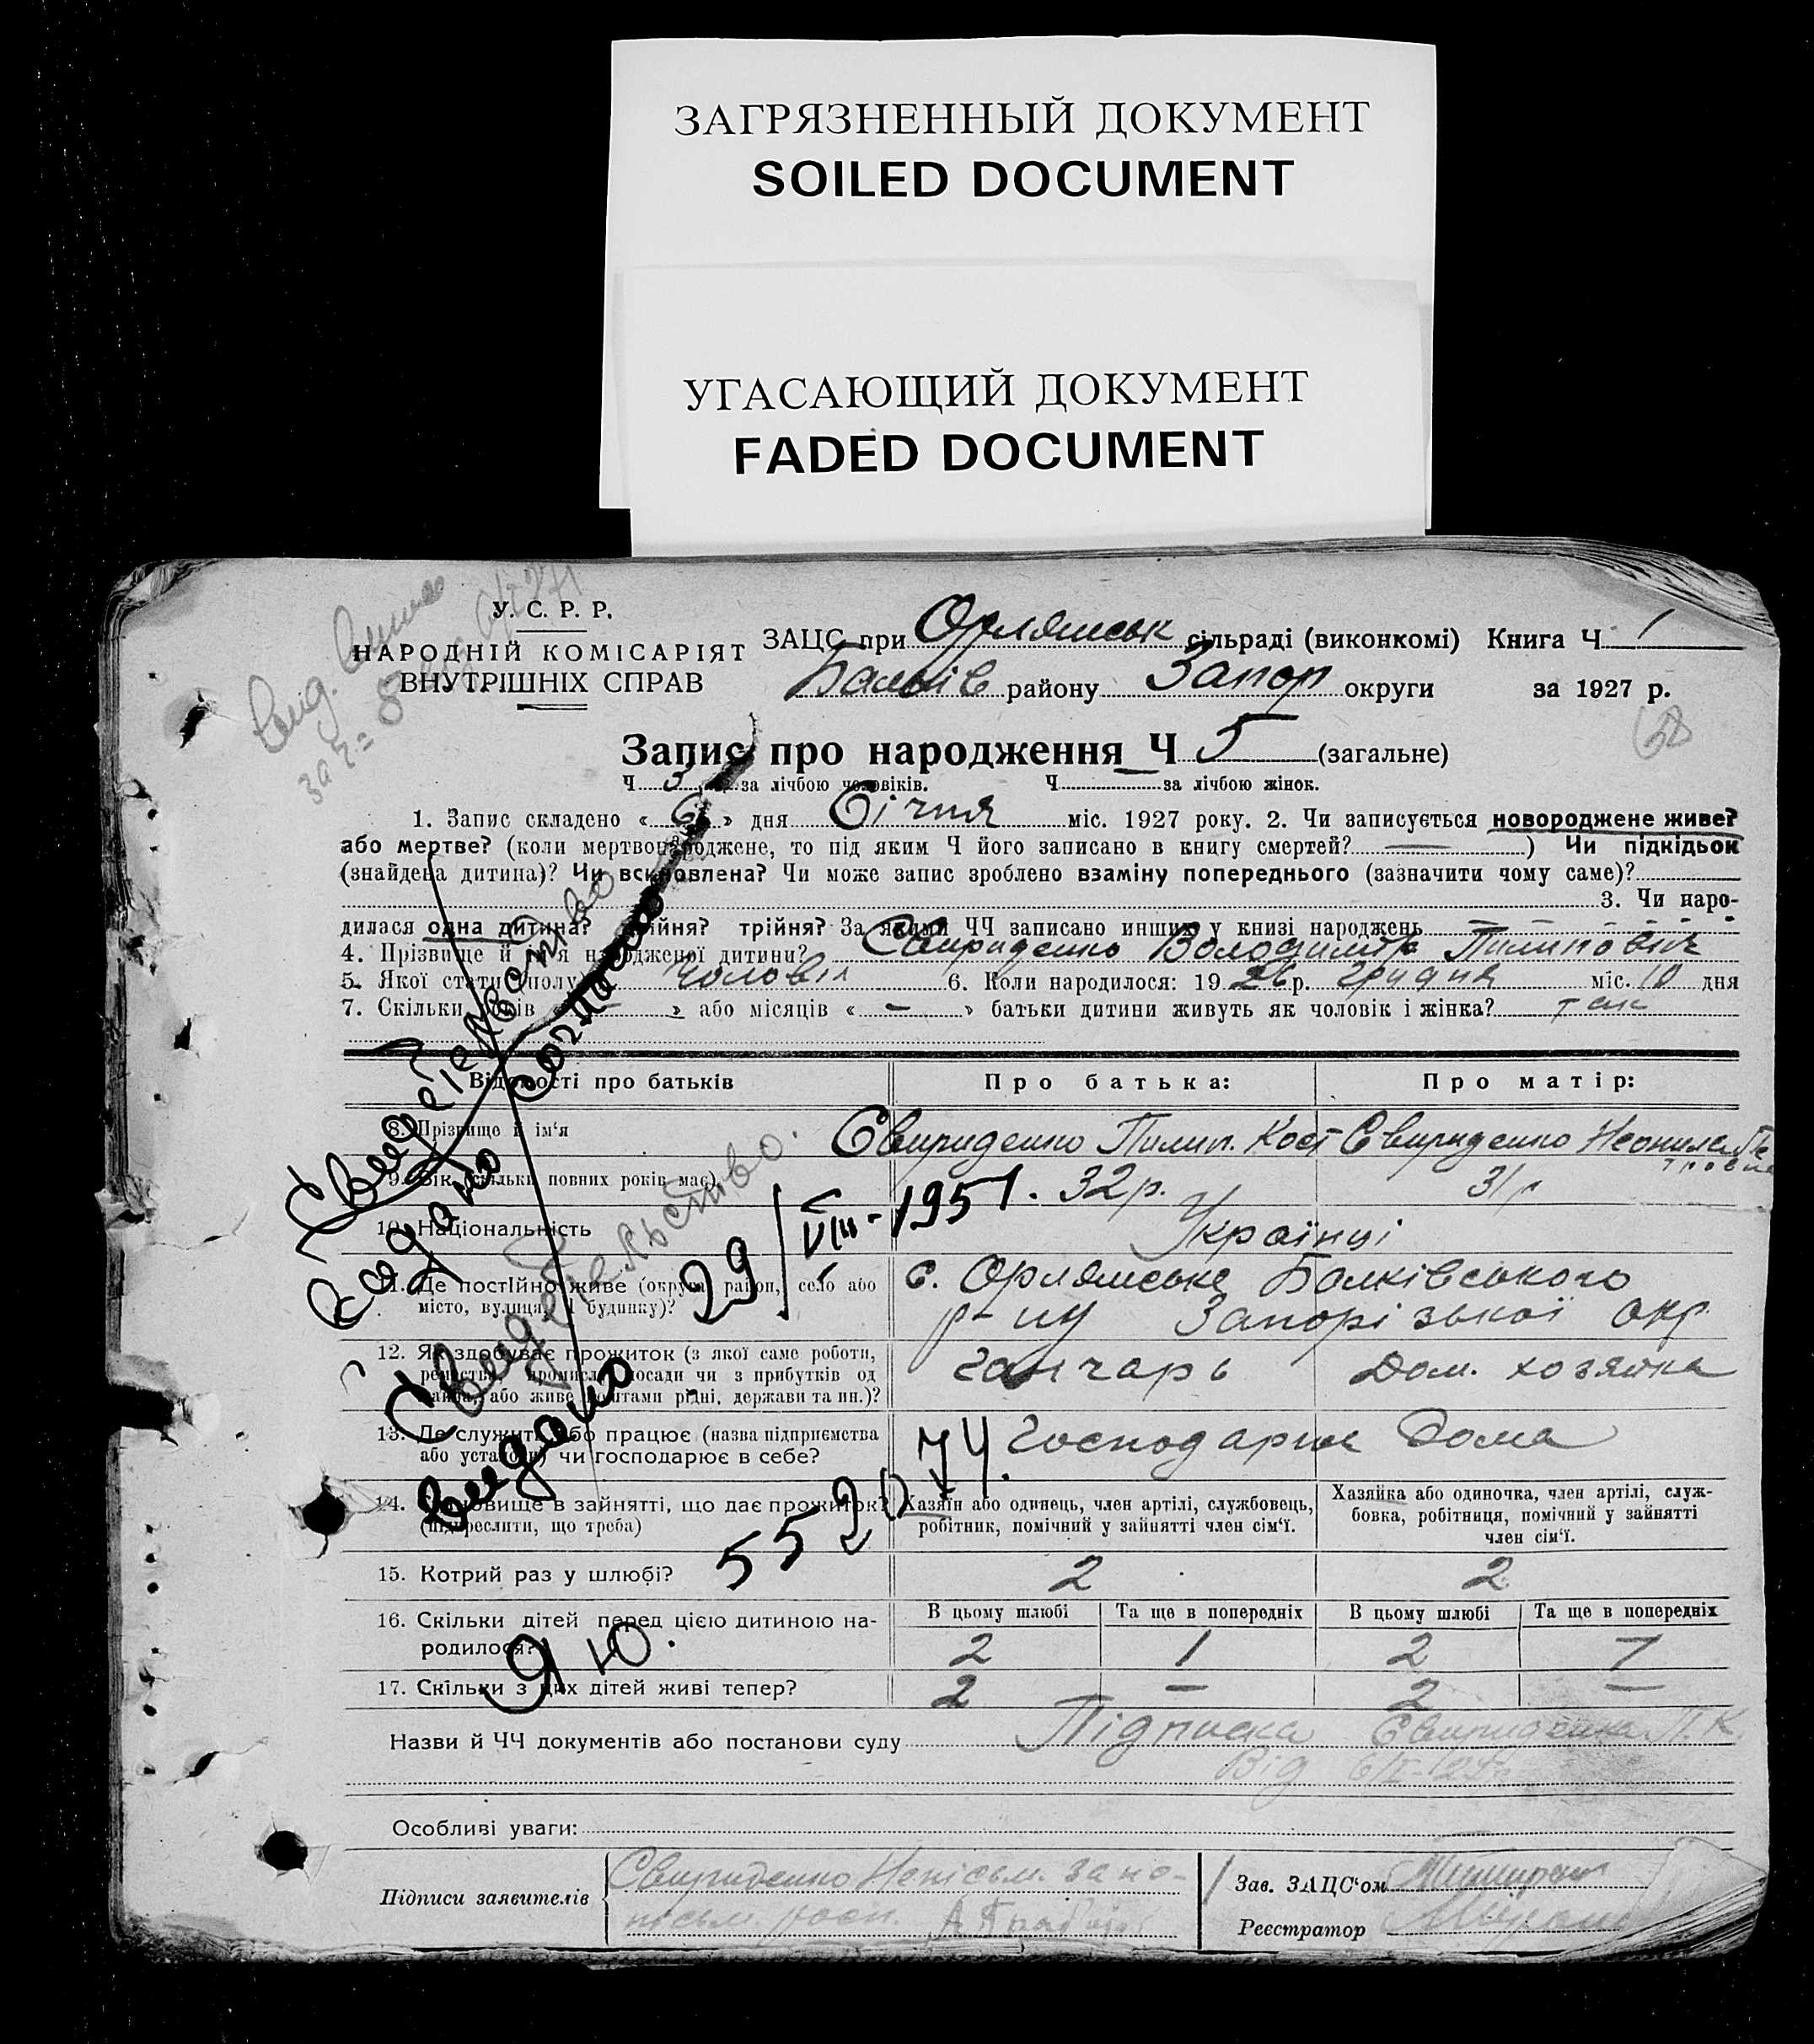 ЗАГРЯЗНЕННЫЙ ДОКУМЕНТ
SOILED DOCUMENT
УГАСАЮЩИЙ ДОКУМЕНТ
FADED DOCUMENT
У. С. Р. Р.
НАРОДНІЙ КОМІСАРІЯТ
ВНУТРІШНІХ СПРАВ
ЗАЦС при Орлянськ сільраді (виконкомі) Книга Ч. 1
району Запор округи за 1927 р.
Запис про народження Ч 5 (загальне)
Ч 3 за лічбою чоловіків. Ч за лічбою жінок.
1. Запис складено « 6 » дня Січня міс. 1927 року. 2. Чи записується новороджене живе?
або мертве? (коли мертвонароджене, то під яким Ч його записано в книгу смертей? — ) Чи підкідьок
(знайдена дитина)? Чи встановлена? Чи може запис зроблено взаміну попереднього (зазначити чому саме)?
3. Чи наро-
дилася одна дитина? двійня? трійня? За якими ЧЧ записано инших у книзі народжень
4. Прізвище й ім'я народженої дитини? Свириденко Володимир Пилипович
5. Якої статі (полу) Чоловіч 6. Коли народилося: 19 26 р. Грудня міс. 10 дня
7. Скільки років « » або місяців « — » батьки дитини живуть як чоловік і жінка? так
Відомості про батьків Про батька: Про матір:
8. Прізвище й ім'я Свириденко Пилип. Кост Свириденко Неонила
9. Вік (скільки повних років має) 32 р. 31 р
10. Національність Українці
11. Де постійно живе (округа, район, село або
місто, вулиця, Ч будинку)?
с. Орлянське Балківського
р-ну Запорізької окр.
12. Як здобуває прожиток (з якої саме роботи,
ремества, промислу, посади чи з прибутків од
майна, або живе коштами рідні, держави та ин.)?
ганчарь Дом. хозяйка
13. Де служить або працює (назва підприємства
або установи) чи господарює в себе?
Господарює Дома
14. Становище в зайнятті, що дає прожиток?
(підкреслити, що треба)
Хазяїн або одинець, член артілі, службовець,
робітник, помічний у зайнятті член сім'ї.
Хазяйка або одиночка, член артілі, служ-
бовка, робітниця, помічний у зайнятті
член сім'ї.
15. Котрий раз у шлюбі? 2 2
16. Скільки дітей перед цією дитиною на-
родилося?
В цьому шлюбі Та ще в попередніх В цьому шлюбі Та ще в попередніх
2 1 2 —
17. Скільки з цих дітей живі тепер? 2 — 2 —
Назви й ЧЧ документів або постанови суду Підписка Свириденка П. К.
Від 6/I-
Особливі уваги:
Підписи заявителів
Свириденко Непісьм. за не-
пісьм. росп.
Зав. ЗАЦС'ом
Реєстратор
Свидетельство
Выдано
29/VIII-1951.
Свидетельство.
Выдано
9 Ю.